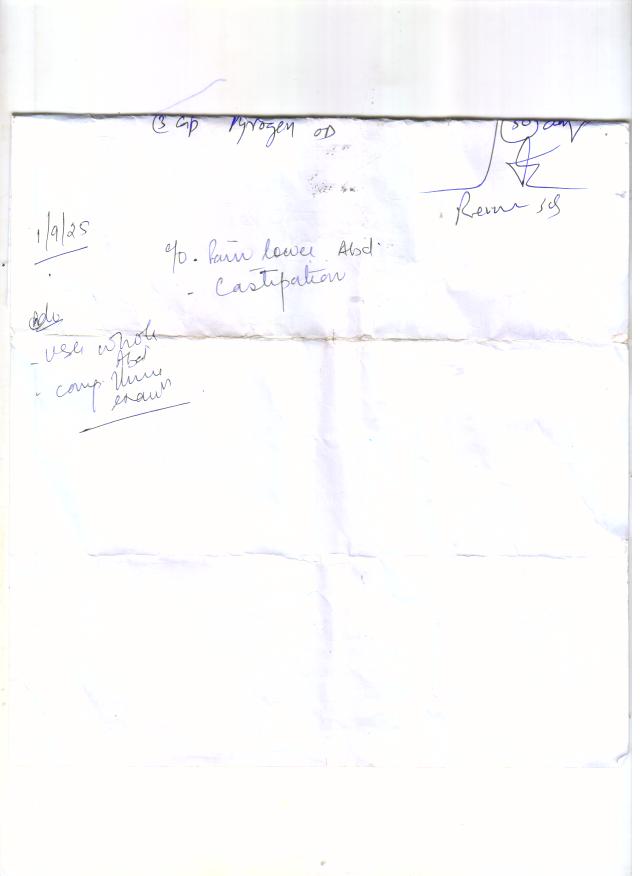 ③ Cap Pyrogen OD
(30) day
Review SOS
1/9/25
c/o. Pain lower Abd.
- Castipation
Adv
- USG whole
Abd
- comp. Urine
examn